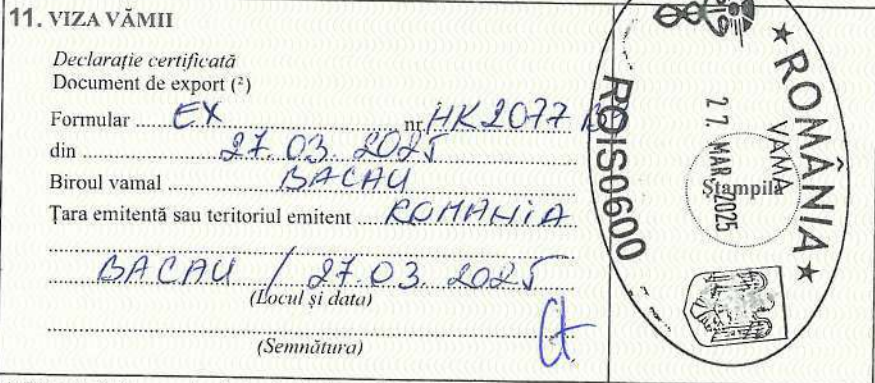 11. VIZA VĂMII
Declarație certificată
Document de export (²)
Formular EX nr HK2077
din 27.03.2025
Biroul vamal BACAU
Țara emitentă sau teritoriul emitent ROMANIA
BACAU / 27.03.2025
(Locul și data)
(Semnătura)
ROMÂNIA
VAMA
Ștampila
27. MAR. 2025
ROIS0600